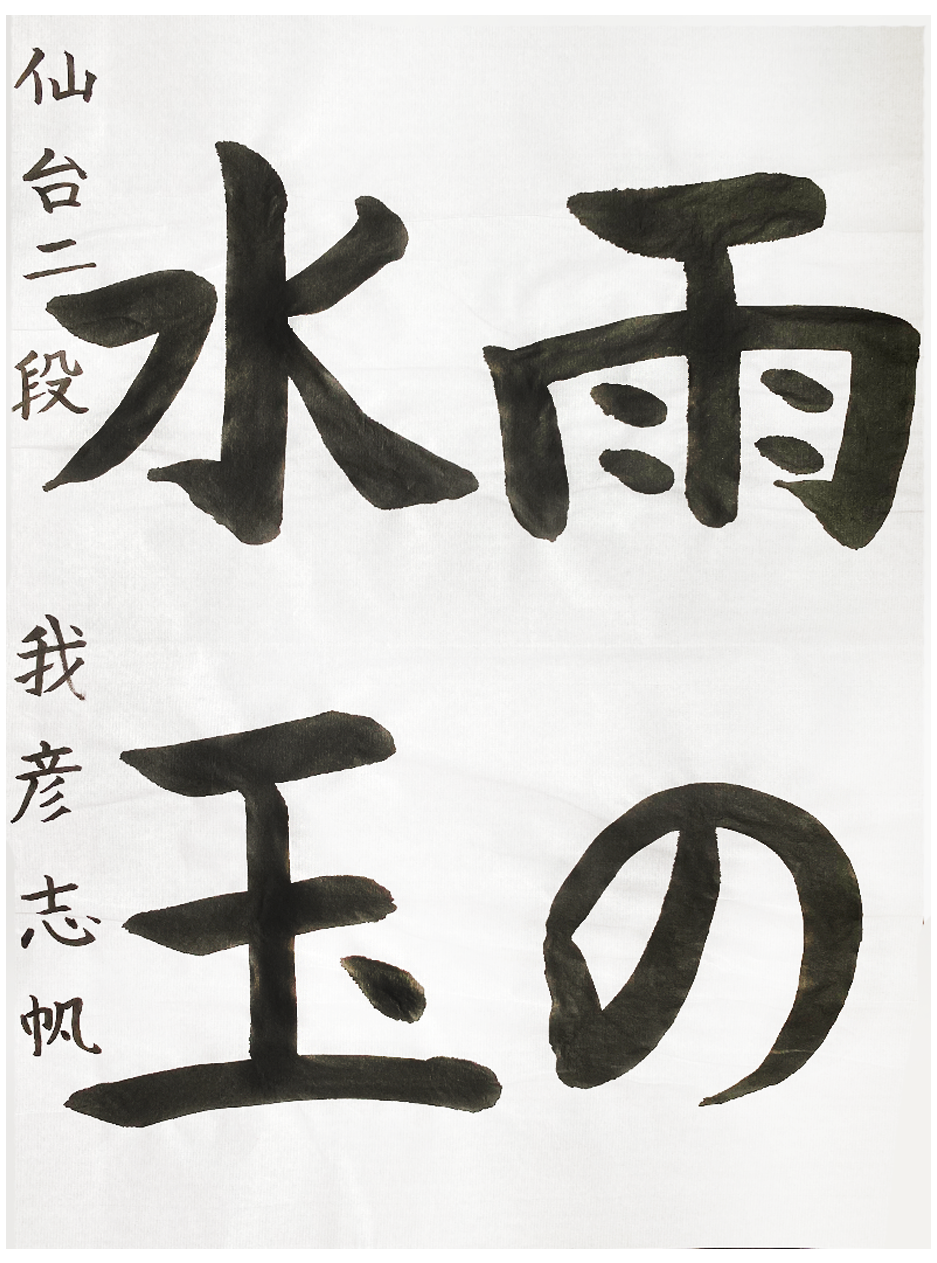 雨の
水玉
仙台二段 我彦志帆